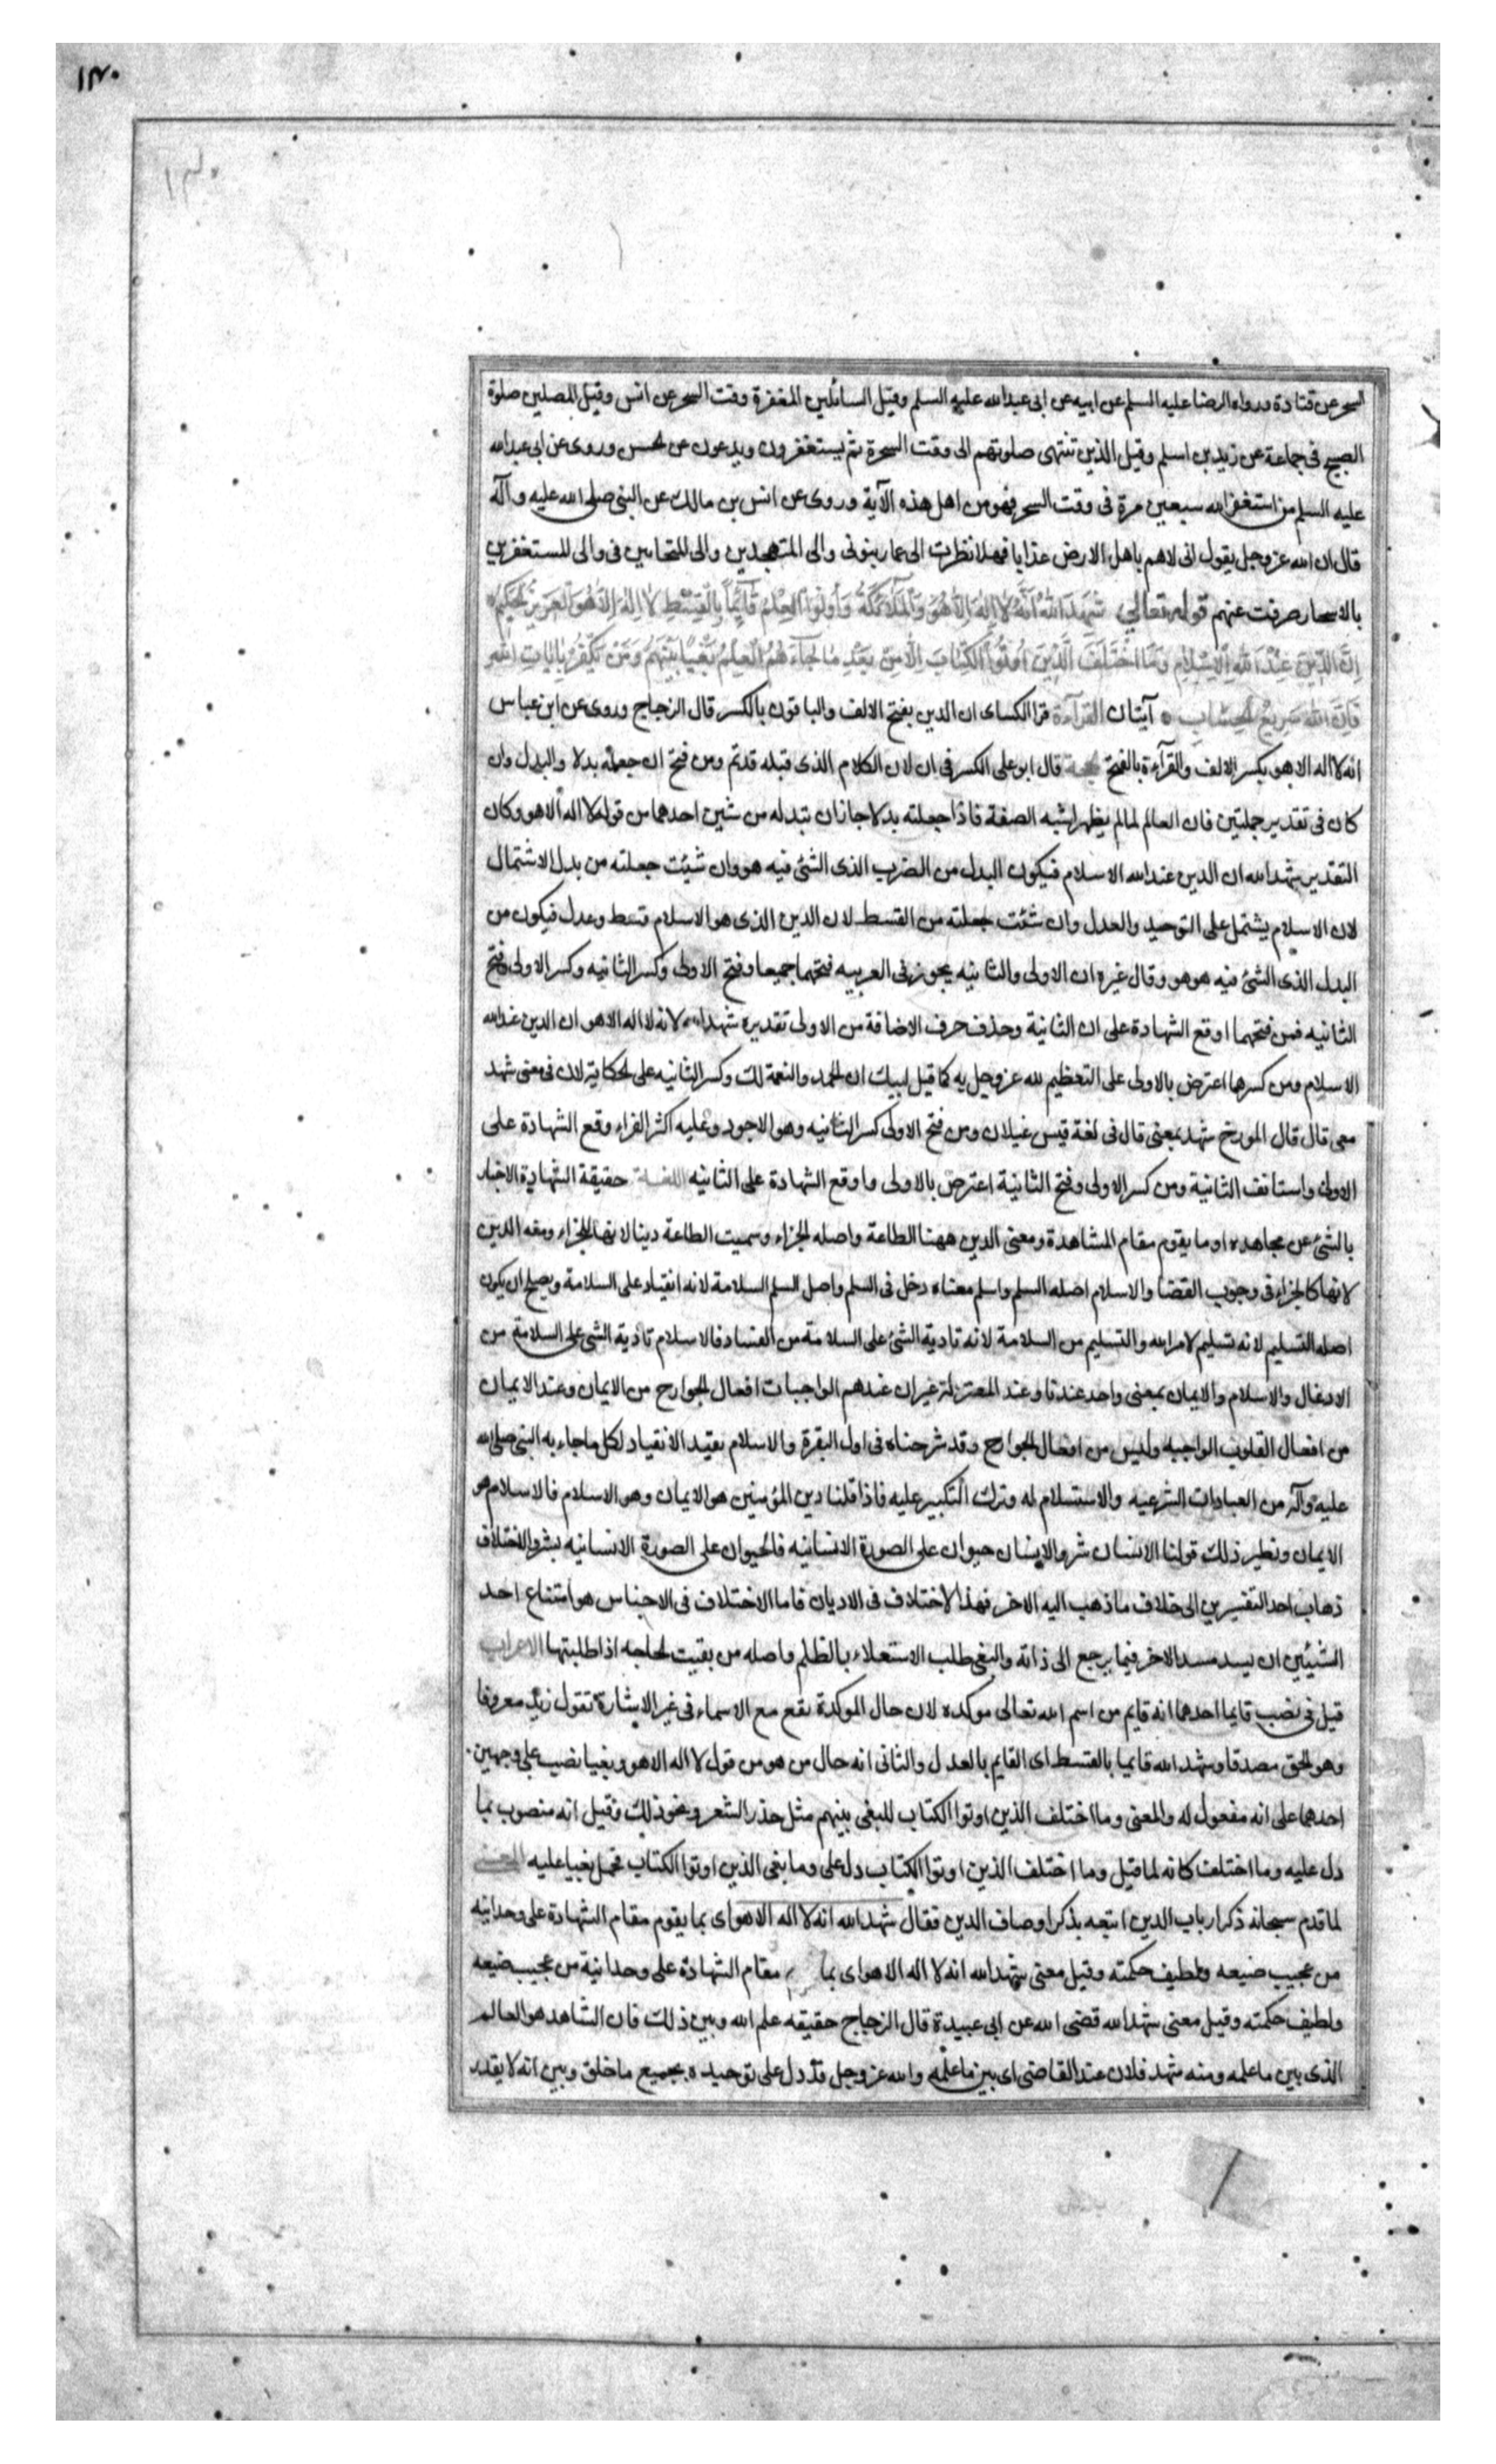 ١٣٠
السحر عن قتادة ورواه الرضا عليه السلم عن ابيه عن ابى عبد الله عليه السلم وقيل السائلين المغفرة وقت السحر عن انس وقيل المصلين صلوة
الصبح فى جماعة عن زيد بن اسلم وقيل الذين تنتهى صلوتهم الى وقت السحرة ثم يستغفرون ويدعون عن لحسن وروى عن ابى عبد الله
عليه السلم من استغفر الله سبعين مرة فى وقت السحر فهو من اهل هذه الآية وروى عن انس بن مالك عن النبى صلى الله عليه وآله
قال ان الله عز وجل يقول انى لاهم باهل الارض عذابا فهلا نظرت الى عمار بيوتى والى المتهجدين والى المتحابين فى والى المستغفرين
بالاسحار صرفت عنهم قوله تعالى شَهِدَ اللهُ اَنَّهُ لَا اِلٰهَ اِلَّا هُوَ وَالْمَلَآئِكَةُ وَاُولُوا الْعِلْمِ قَآئِمًا بِالْقِسْطِ لَا اِلٰهَ اِلَّا هُوَ الْعَزِيزُ الْحَكِيمُ
اِنَّ الدِّيْنَ عِنْدَ اللهِ الْاِسْلَامِ وَمَا اخْتَلَفَ الَّذِيْنَ اُوتُوا الْكِتَابَ اِلَّا مِنْ بَعْدِ مَا جَآءَهُمُ الْعِلْمُ بَغْيًا بَيْنَهُمْ وَمَنْ يَكْفُرْ بِاٰيَاتِ اللهِ
فَاِنَّ اللهَ سَرِيْعُ الْحِسَابِ آيتان القرآءة قرا الكساى ان الدين بفتح الالف والباقون بالكسر قال الزجاج وروى عن ابن عباس
انه لا اله الا هو بكسر الالف والقرآءة بالفتح لحجة قال ابو على الكسر فى ان لان الكلام الذى قبله قد تم ومن فتح ان جعله بدلا والبدل وان
كان فى تقدير جملتين فان العالم لما لم يظهر اشبه الصفة فاذا جعلته بدلا جاز ان تبدله من شين احدهما من قوله لا اله الا هو وكان
التقدير شهد الله ان الدين عند الله الاسلام فيكون البدل من الضرب الذى الشئ فيه هو وان شيئت جعلته من بدل الاشتمال
لان الاسلام يشتمل على التوحيد والعدل وان شئت جعلته من القسط لان الدين الذى هو الاسلام قسط وعدل فيكون من
البدل الذى الشئ فيه هو هو وقال غيره ان الاولى والثانيه يجوز فى العربيه فتحهما جميعا وفتح الاولى وكسر الثانيه وكسر الاولى وفتح
الثانيه فمن فتحهما اوقع الشهادة على ان الثانية وحذف حرف الاضافة من الاولى تقديره شهد الله لانه لا اله الا هو ان الدين عند الله
الاسلام ومن كسرهما اعترض بالاولى على التعظيم لله عز وجل به كما قيل لبيك ان لحمد والنعمة لك وكسر الثانيه على لحكاية لان فى معنى شهد
معى قال قال المورخ شهد بمعنى قال فى لغة قيس غيلان ومن فتح الاولى كسر الثانيه وهو الاجود وعليه اكثر القراء وقع الشهادة على
الاولى واستانف الثانية ومن كسر الاولى وفتح الثانية اعترض بالاولى واوقع الشهادة على الثانيه اللغة حقيقة الشهادة الاخبار
بالشئ عن مجاهده او ما يقوم مقام المشاهدة ومعنى الدين ههنا الطاعة واصله لجزاء وسميت الطاعة دينا لانها للجزاء ومنه الدين
لانها كالجزاء فى وجوب القضا والاسلام اصله السلم واسلم معناه دخل فى السلم واصل السلم السلامة لانه انقياد على السلامة ويصلح ان يكون
اصله التسليم لانه تسليم لامر الله والتسليم من السلامة لانه تادية الشئ على السلامة من الفساد فالاسلام تادية الشئ على السلامة من
الادغال والاسلام والايمان بمعنى واحد عندنا وعند المعتزلة غير ان عندهم الواجبات افعال لجوارح من الايمان وعند الايمان
من افعال القلوب الواجبه وليس من افعال لجوارح وقد شرحناه فى اول البقرة والاسلام يفيد الانقياد لكل ما جاء به النبى صلى الله
عليه وآله من العبادات الشرعيه والاستسلام له وترك التكبير عليه فاذا قلنا دين المؤمنين هو الايمان وهو الاسلام فالاسلام هو
الايمان ونظير ذلك قولنا الانسان بشر والانسان حيوان على الصورة الانسانيه فالحيوان على الصورة الانسانيه بشر والاختلاف
ذهاب احد النفسرين الى خلاف ما ذهب اليه الاخر فهذا لاختلاف فى الاديان فاما الاختلاف فى الاجناس هو امتناع احد
الشيئين ان يسد مسد الاخر فيما يرجع الى ذاته والبغى طلب الاستعلاء بالظلم واصله من بغيت لحاجه اذا طلبتها الاعراب
قيل فى نصب قايما احدهما انه قايم من اسم الله تعالى موكده لان حال الموكدة تقع مع الاسماء فى غير الاشارة تقول زيد معروفا
وهو لحق مصدقا وشهد الله قايما بالقسط اى القايم بالعدل والثانى انه حال من هو من قول لا اله الا هو وبغيا نصب على وجهين
احدهما على انه مفعول له والمعنى وما اختلف الذين اوتوا الكتاب للبغى بينهم مثل حذر الشعر ونحو ذلك وقيل انه منصوب بما
دل عليه وما اختلف كانه لما قيل وما اختلف الذين اوتوا الكتاب دل على وما بغى الذين اوتوا الكتاب فحمل بغيا عليه المعنى
لما قدم سبحانه ذكر ارباب الدين اتبعه بذكر اوصاف الدين فقال شهد الله انه لا اله الا هو اى بما يقوم مقام الشهادة على وحدانيه
من عجيب صنيعه ولطيف حكمته وقيل معنى شهد الله انه لا اله الا هو اى بما مقام الشهادة على وحدانية من عجيب صنيعه
ولطيف حكمته وقيل معنى شهد الله قضى الله عن ابى عبيدة قال الزجاج حقيقه علم الله وبين ذلك فان الشاهد هو العالم
الذى بين ما علمه ومنه شهد فلان عند القاضى اى بين ما علمه والله عز وجل قد دل على توحيده بجميع ما خلق وبين انه لا يقدر